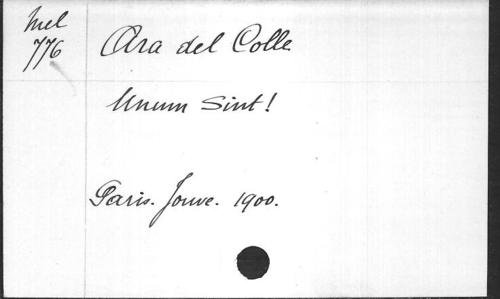 Mel
776
Ara del Colle
Unum Sint!
Paris. Jouve. 1900.